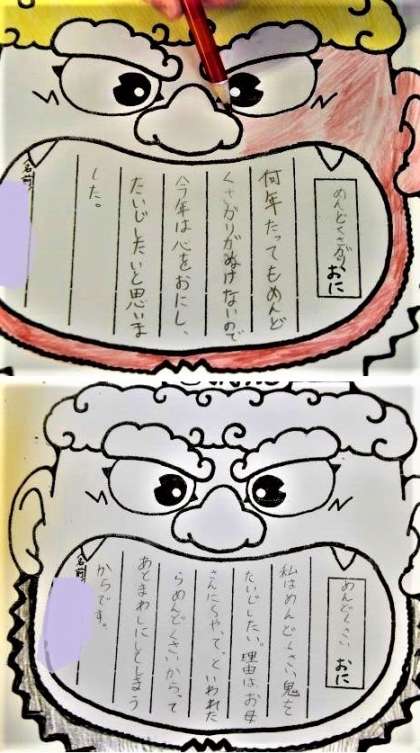 めんどくさがりおに
何年たってもめんど
くさがりがぬけないので
今年は心をおにし、
たいじしたいと思いま
した。
名前
めんどくさい おに
私はめんどくさい鬼を
たいじしたい。理由はお母
さんに「やって」といわれた
らめんどくさいからって
あとまわしにしてしまう
からです。
名前